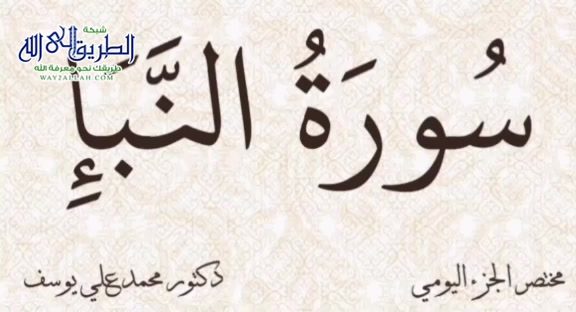 شبكة
الطريق إلى الله
طريقك نحو معرفة الله
WAY2ALLAH.COM
سُورَةُ النَّبَأِ
مختصر الجزء اليومي
دكتور محمد علي يوسف